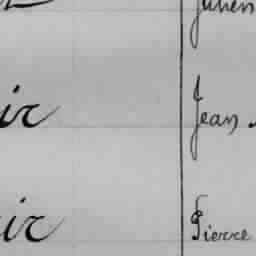 Julien
ir Jean
ir Pierre